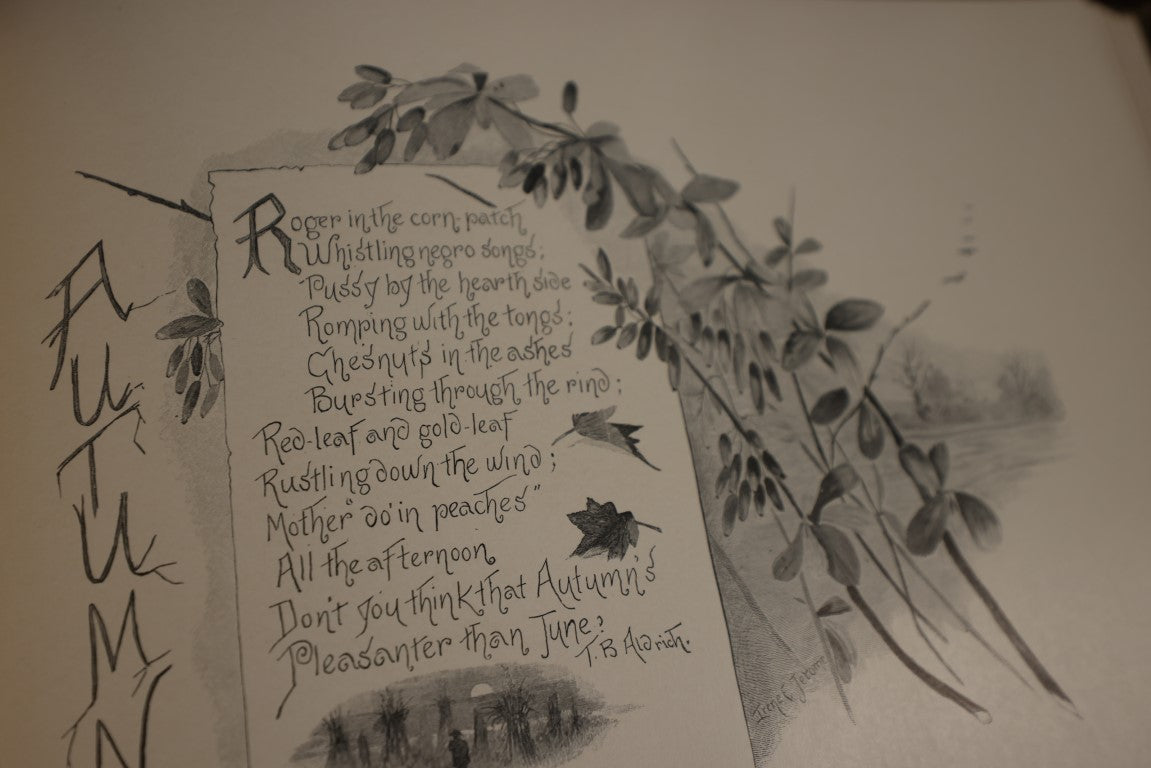 AUTUMN
Roger in the corn-patch
Whistling negro songs;
Pussy by the hearth side
Romping with the tongs;
Chesnuts in the ashes
Bursting through the rind;
Red-leaf and gold-leaf
Rustling down the wind;
Mother "do'in peaches"
All the afternoon
Don't you think that Autumn's
Pleasanter than June?
T. B. Aldrich.